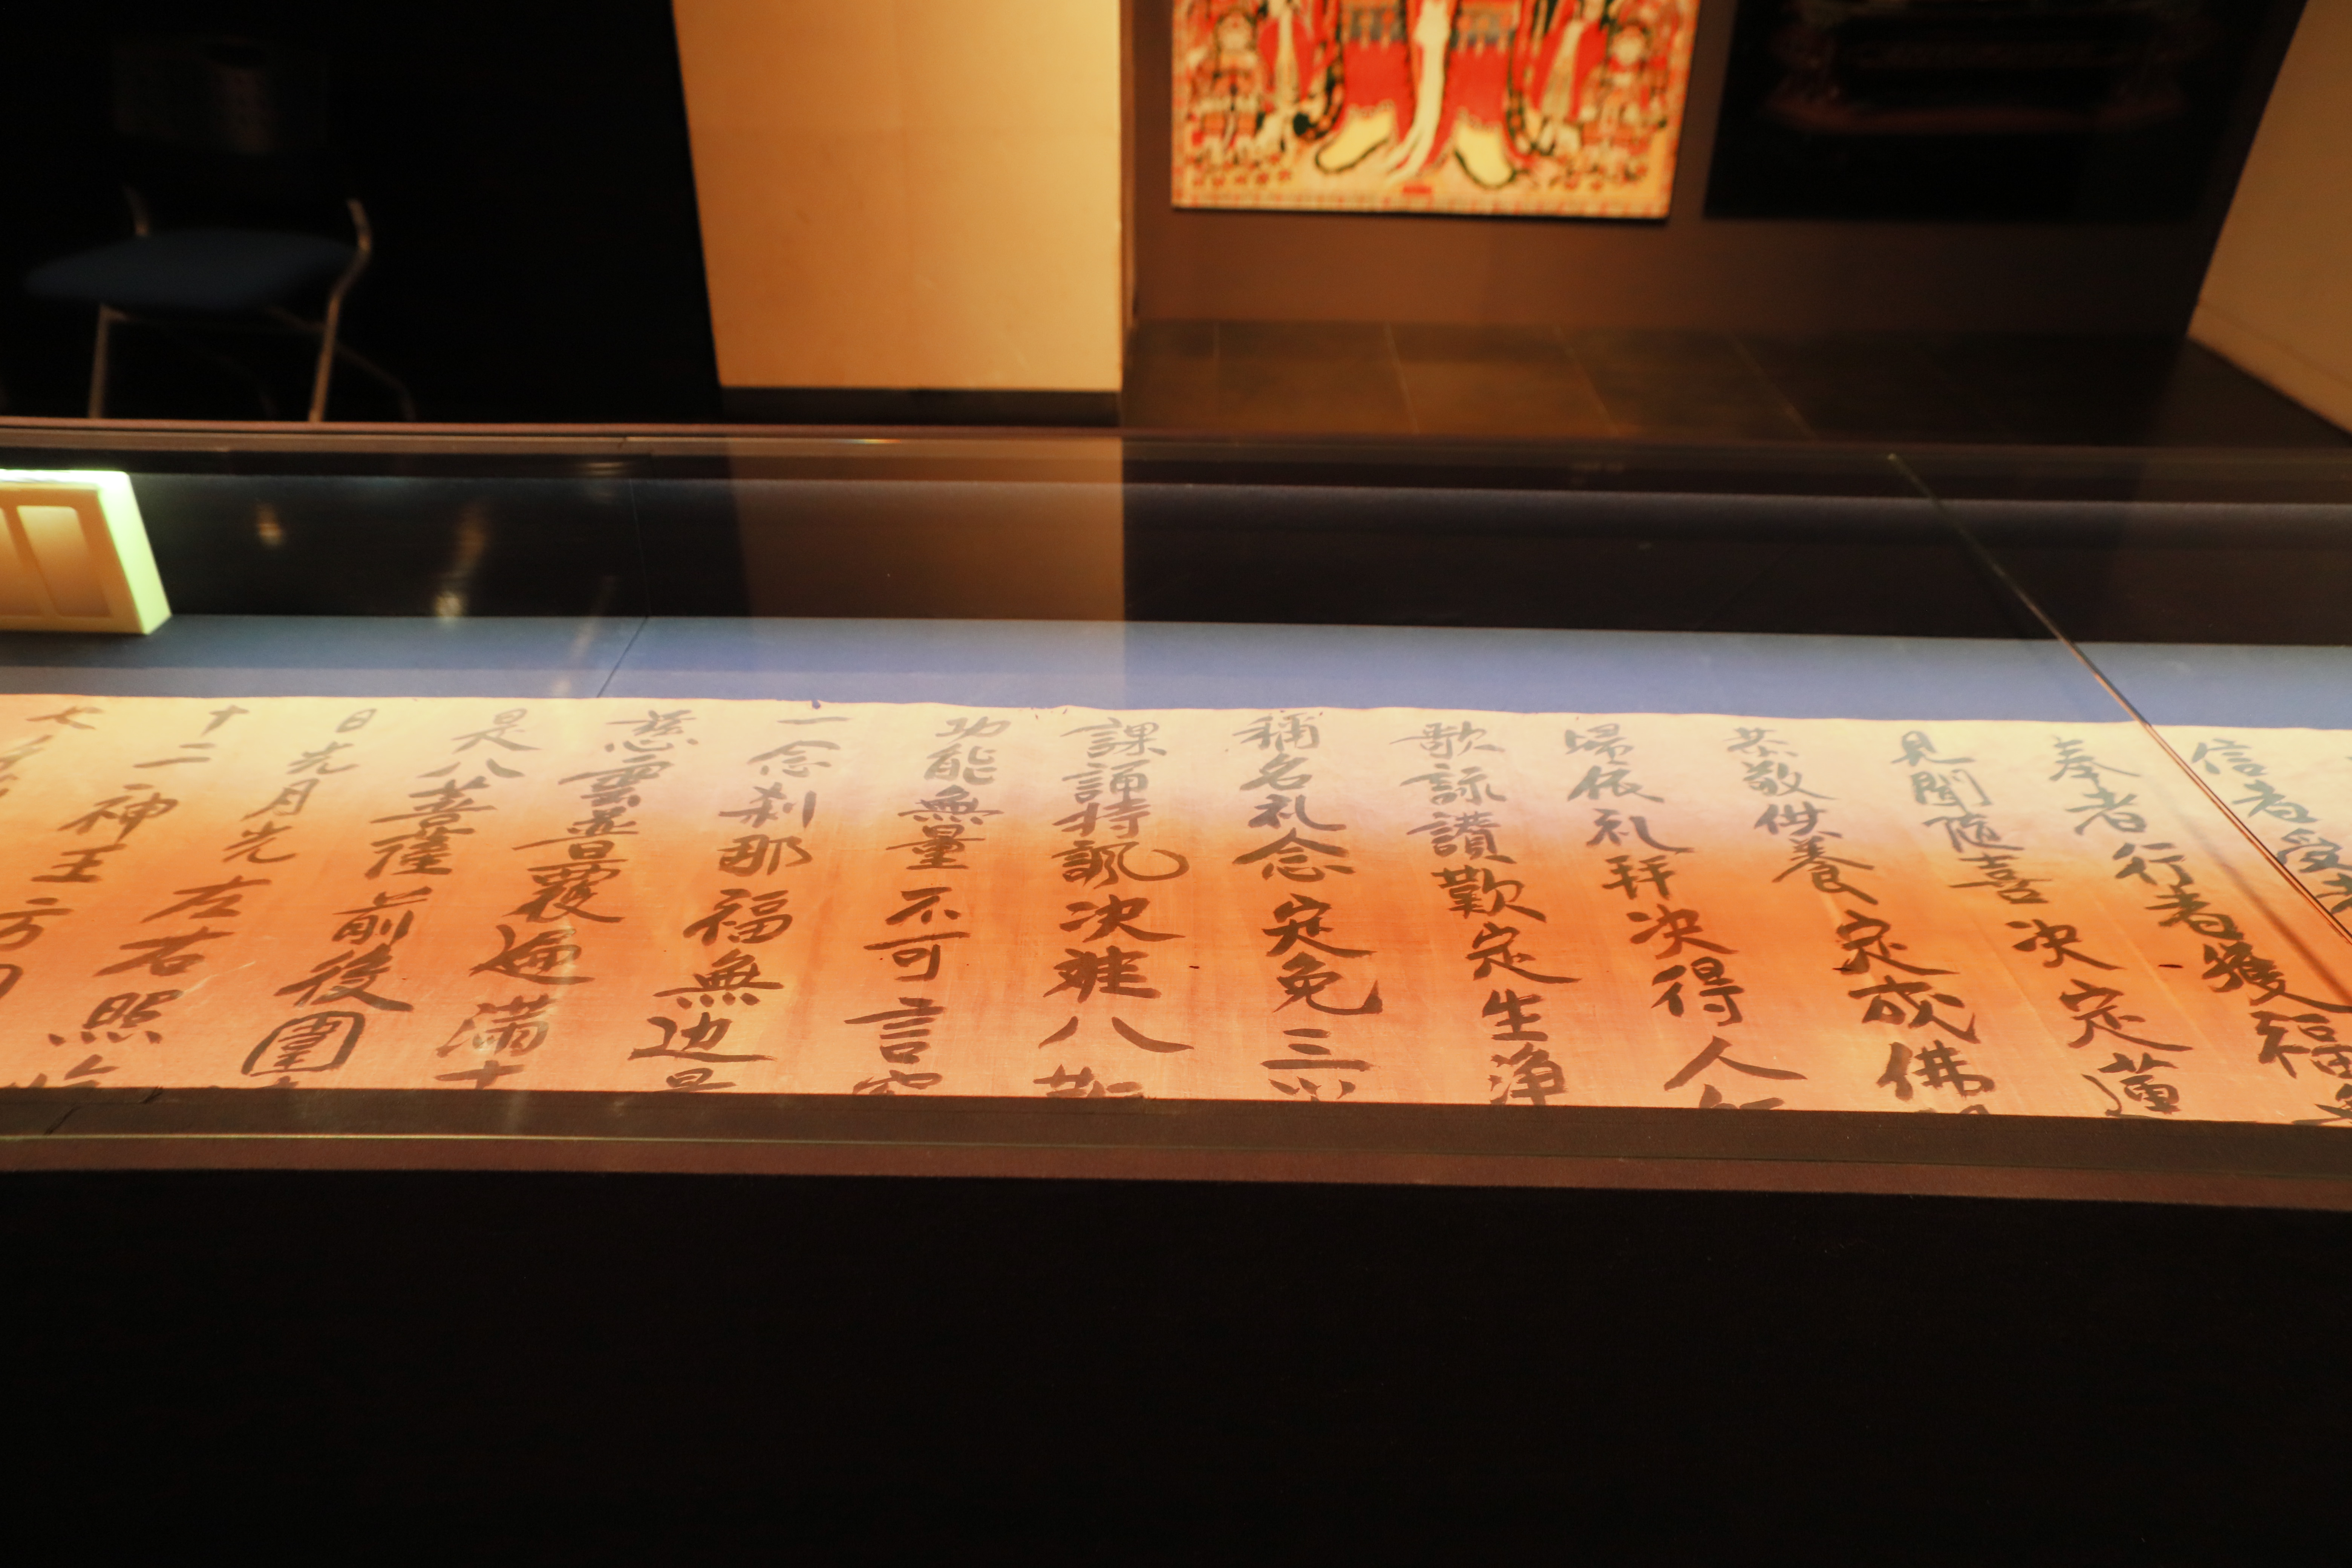 信者受
奉者行者獲福
見聞随喜決定蓮
恭敬供養定成佛
帰依礼拝决得人
歌詠讃歎定生浄
稱名礼念定免三
課誦持諷决離八
功能無量不可言
一念刹那福無边
慈雲普覆遍満十
是八菩薩前後圍
日光月光左右照
十二神王方
七